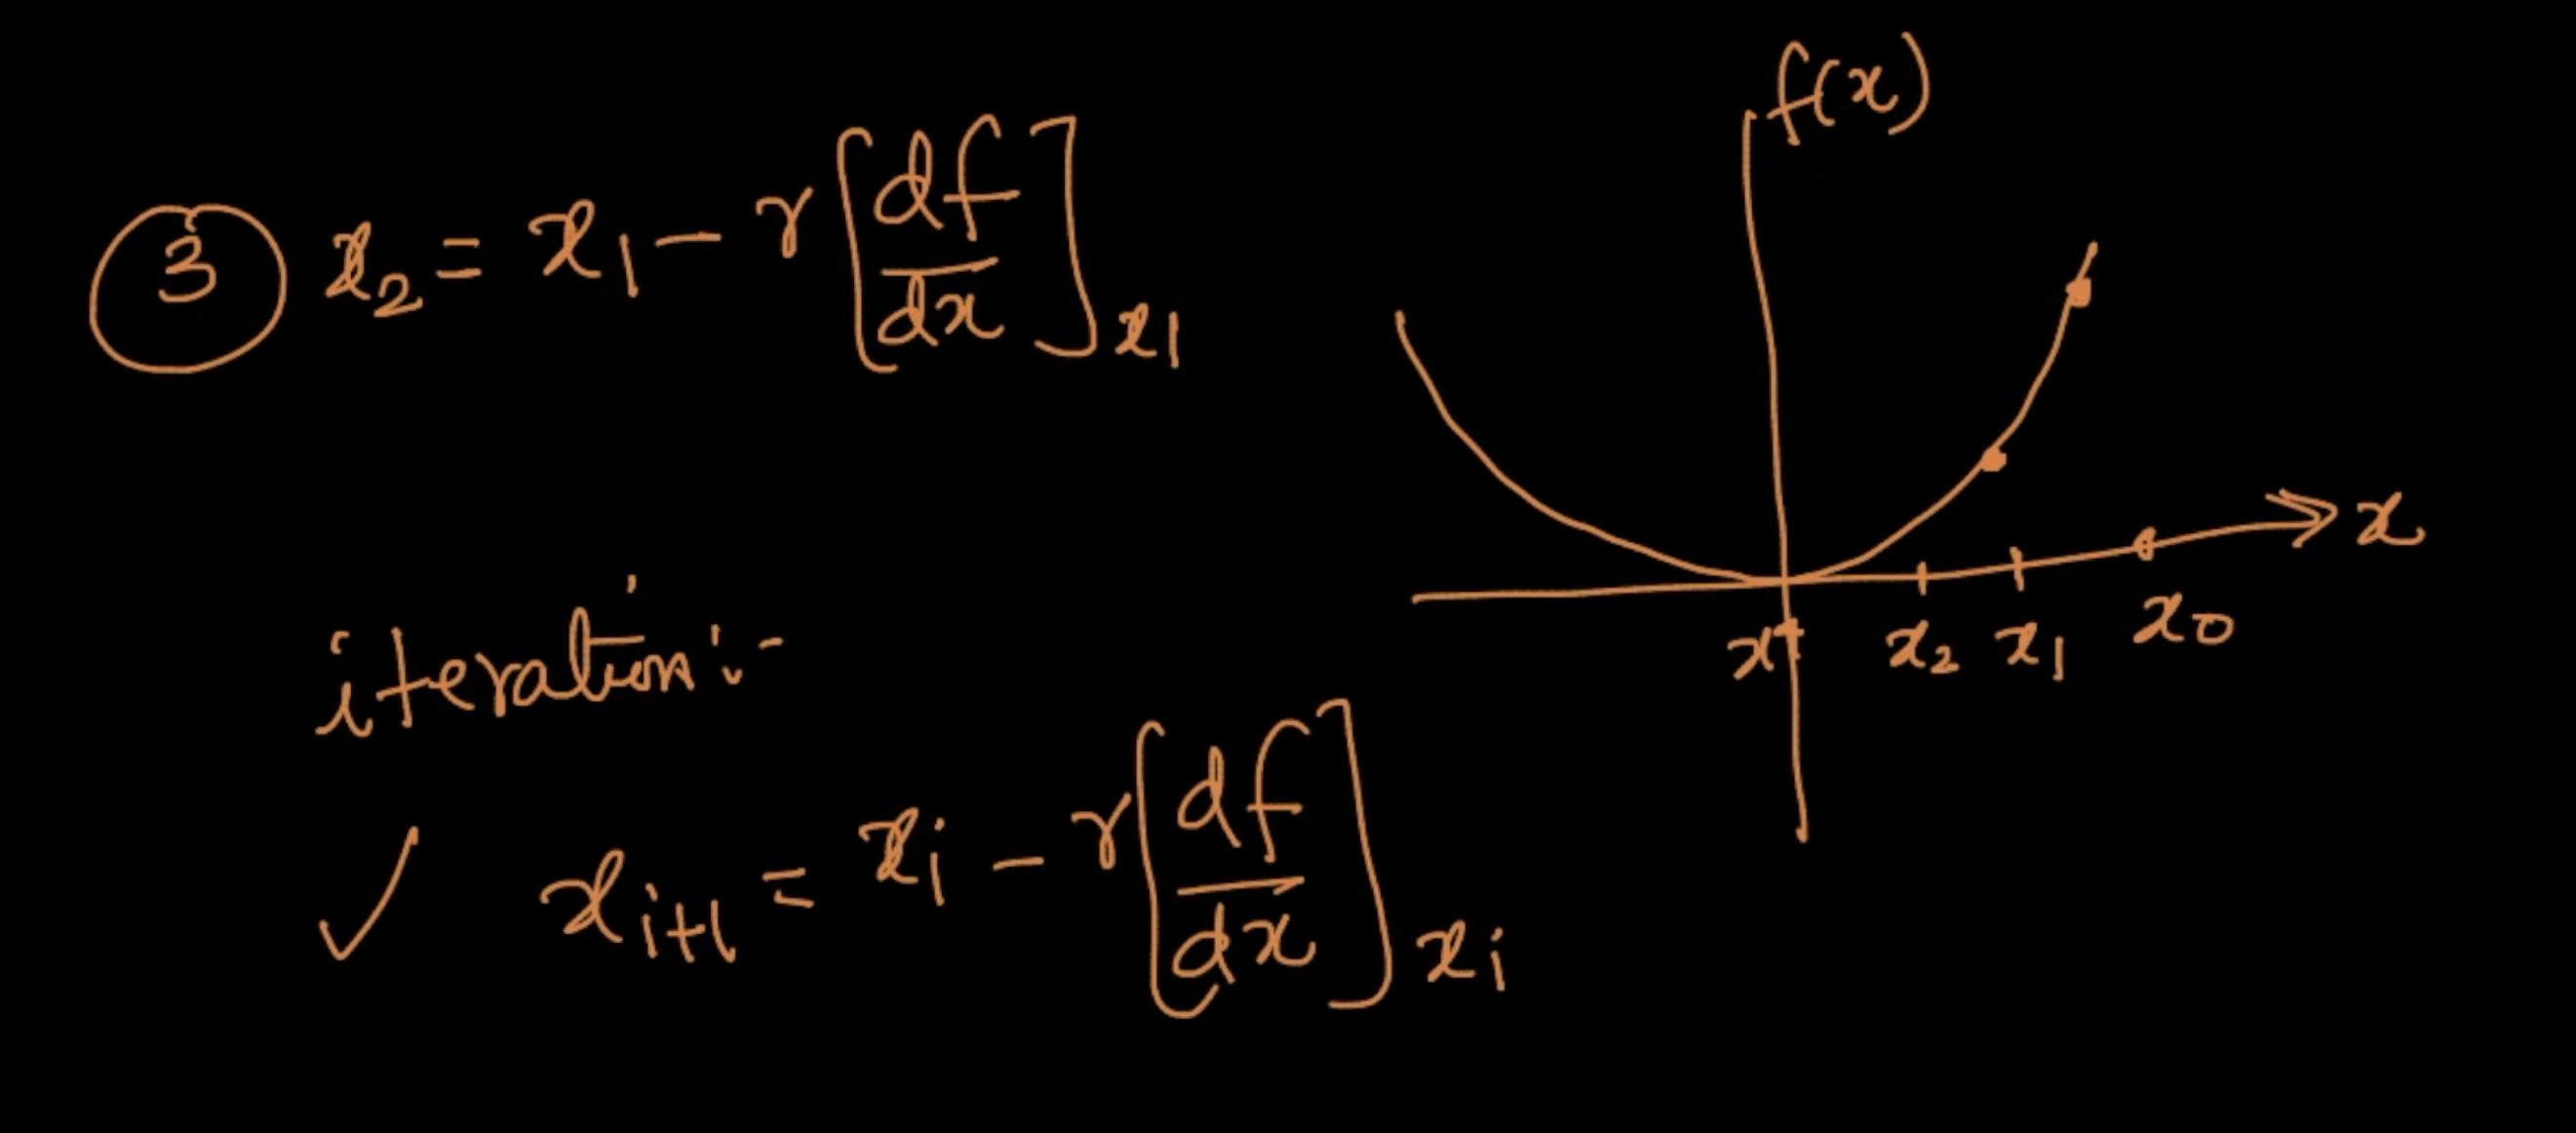 ③ x₂ = x₁ - r [df/dx]ₓ₁
iteration :-
✓ xᵢ₊₁ = xᵢ - r [df/dx]ₓᵢ
f(x)
x
x* x₂ x₁ x₀